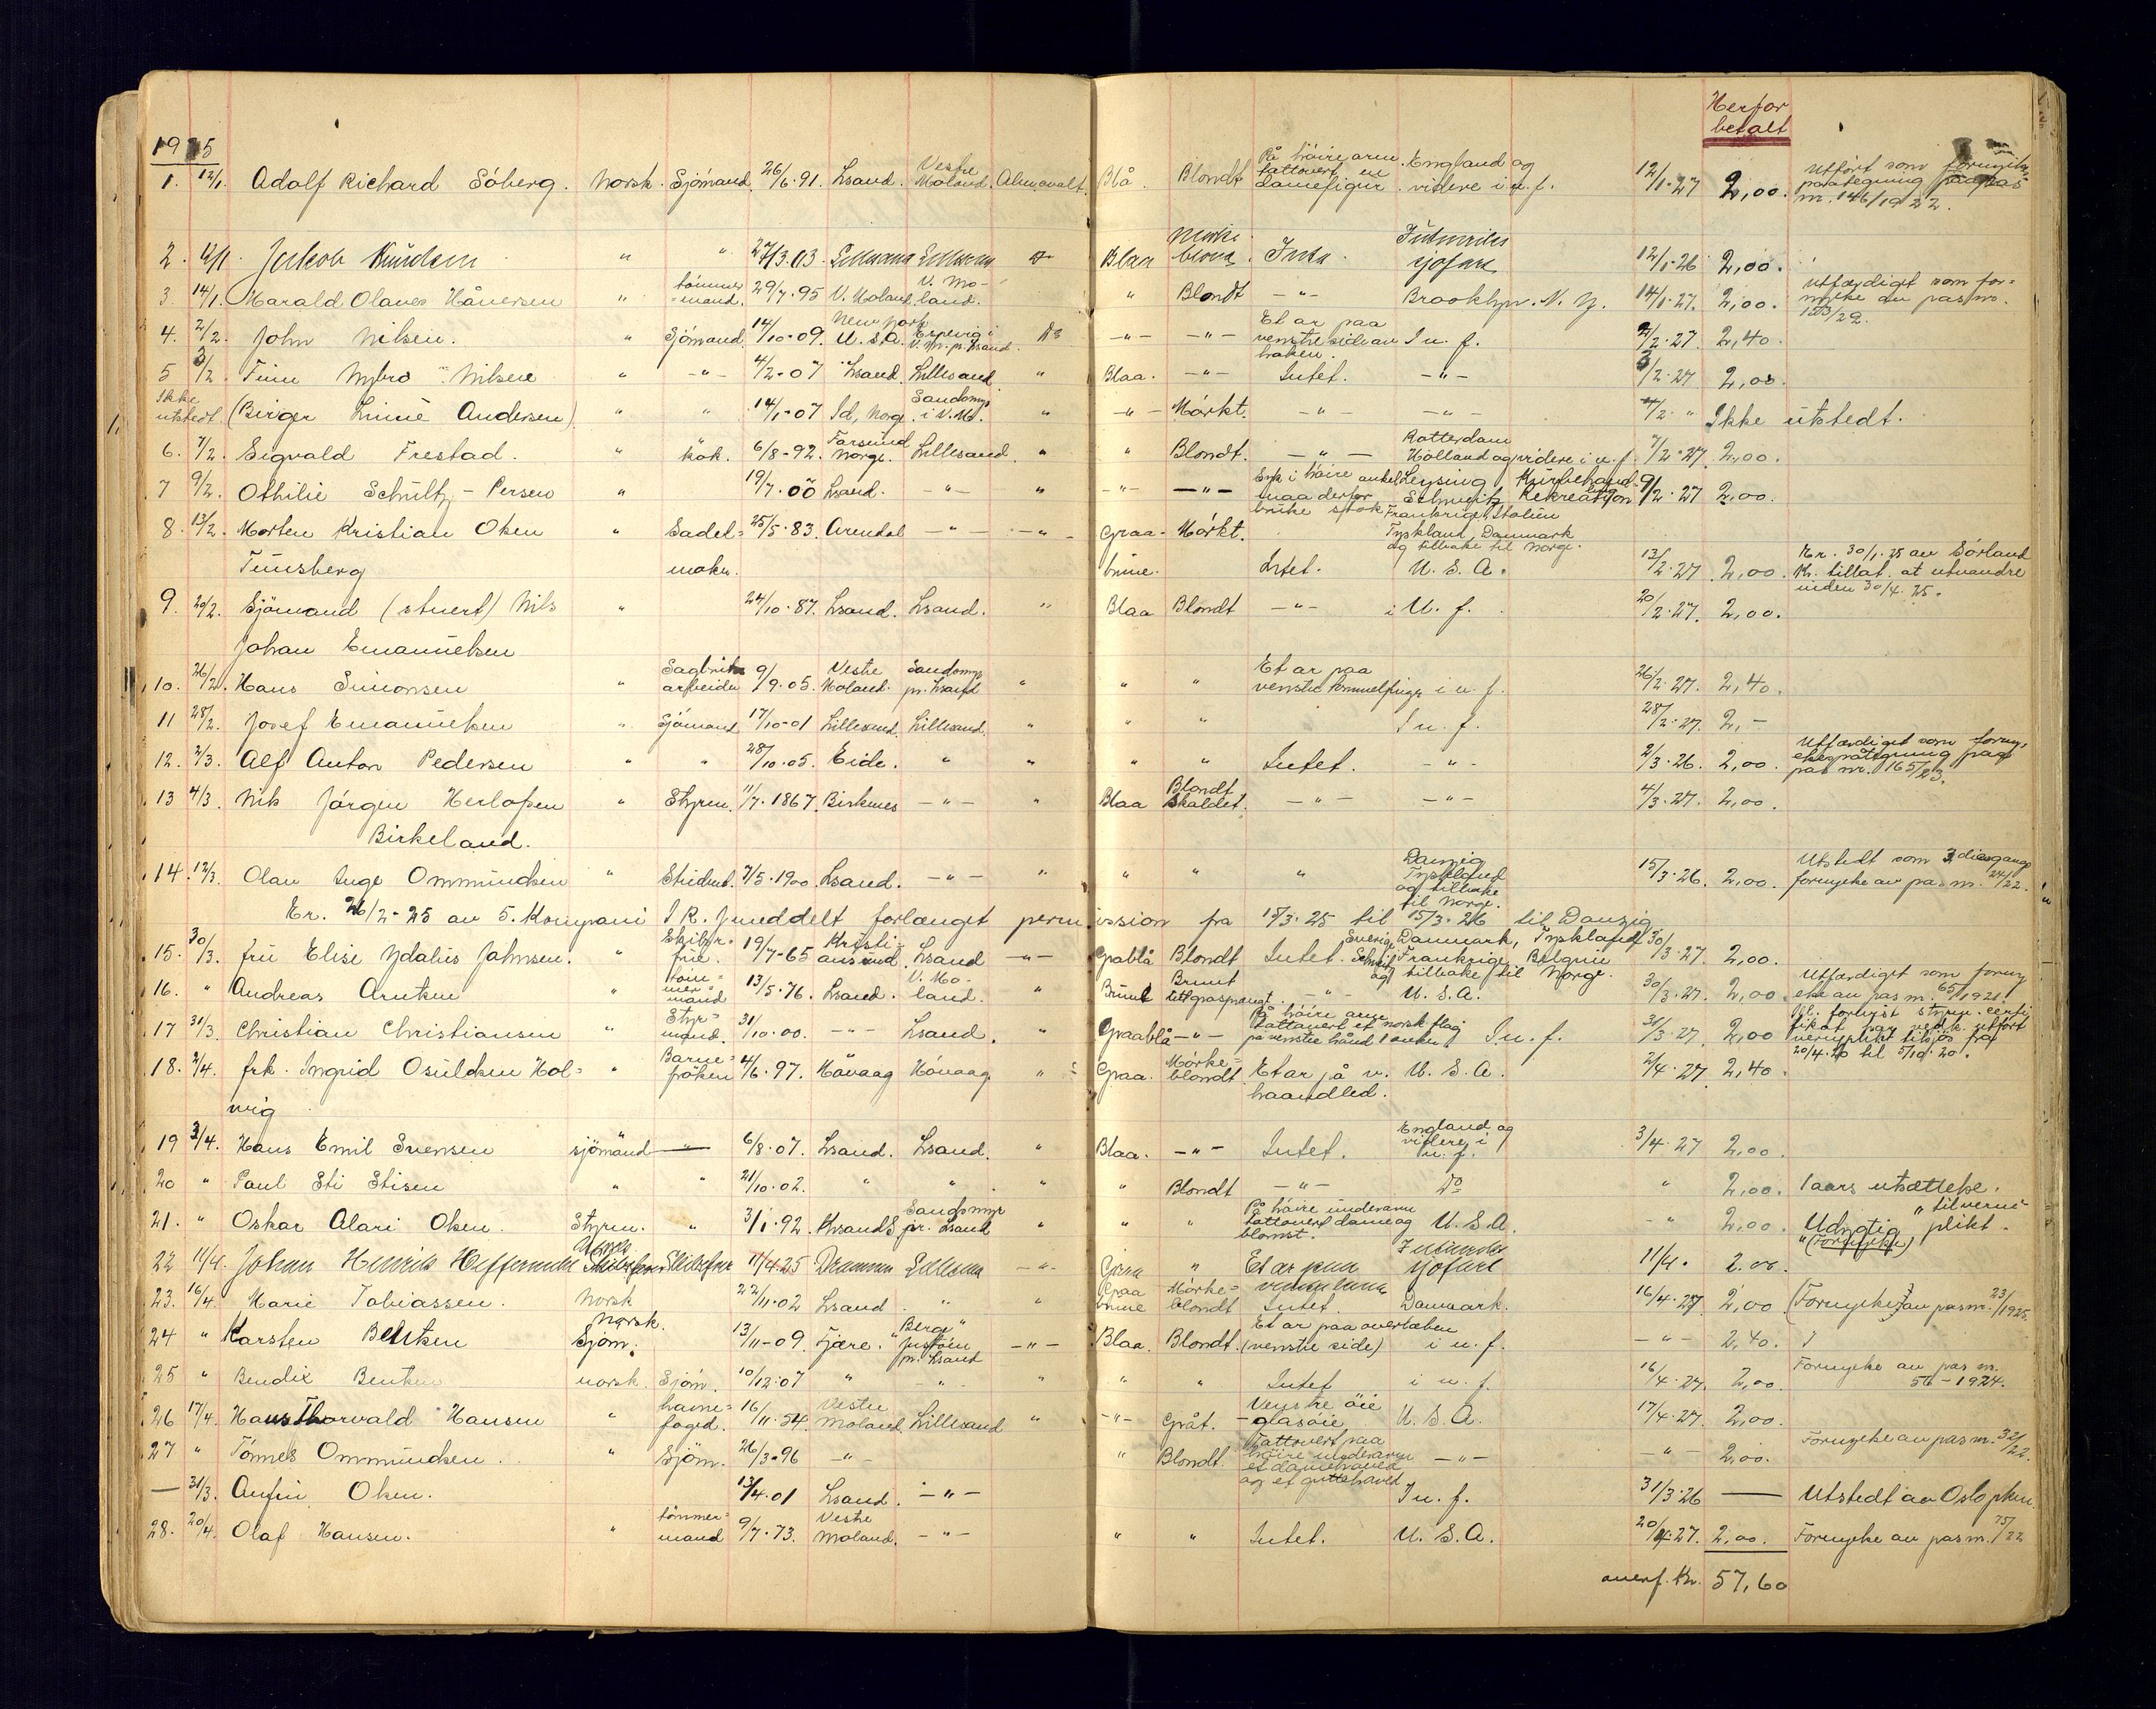 Herfor
betalt
1925
1. 12/1. Adolf Richard Söberg. Norsk. Sjömand 26/6.91. Lsand. Vestre Moland. Alm.avalt. Blå. Blondt På höire arm tattovert en damefigur. England og videre i u. f. 12/1.27 2,00. Utfört som fornyelses paategning på pas nr. 146/1922.
2. 12/1. Jakob Knudsen " " 27/3.03. Lillesand Lillesand Do Blaa Mörke blond. Intet. Utenriks sjöfart 12/1.26 2,00.
3. 14/1. Harald Olaves Håversen " tömmermand. 29/7.95 V. Moland. V. Moland. " Blondt -"- Brooklyn. N. Y. 14/1.27. 2,00. Utfærdiget som fornyelse av pas no. 123/22.
4. 2/2. John Nilsen. " Sjömand. 14/10-09. New York U. S. A. Espevig i V. M. pr. Lsand. Do -"- -"- Et ar paa venstre side av haken. I u. f. 2/2.27. 2,40.
5 3/2. Finn Nybro Nilsen " -"- 4/2-07 Lsand. Lillesand " Blaa. -"- Intet. -"- 3/2.27 2,00.
Ikke utstedt. (Birger Linné Andersen) " " 14/1-07 Id, Norge. Sandsmyr i V. M. " -"- Mörkt. -"- -"- 4/2 " Ikke utstedt.
6. 7/2. Sigvald Frestad. " kok. 6/8-92. Farsund Norge. Lillesand. " " Blondt. -"- Rotterdam Holland og videre i u. f. 7/2.27. 2,00.
7 9/2. Othilie Schultz-Persen " 19/7.00 Lsand. -"- " -"- -"- Syk i höire ankel maa derfor bruke stok Leysing Kurbehandling Schweitz Rekreation 9/2.27 2,00.
8. 13/2. Morten Kristian Olsen " Sadel= 25/5.83. Arendal -"- -"- Graa- Mörkt. Frankrige, Italien Tyskland, Danmark og tilbake til Norge.
Tunsberg maker. brune. Intet. U. S. A. 13/2.27 2,00. Kr. 30/1.25 av Sörland Kr. tillat. at utvandre inden 30/4.25.
9. 20/2. Sjömand (stuert) Nils " 24/10.87. Lsand. Lsand. " Blaa Blondt -"- i U. f. 20/2.27. 2,00.
Johan Emanuelsen
10. 26/2. Hans Simonsen " Sagbruksarbeider 9/9.05. Vestre Moland. Sandsmyr pr. Lsand " " " Et ar paa venstre tommelfinger i u. f. 26/2.27. 2,40.
11 28/2. Josef Emanuelsen " Sjömand 17/10-01 Lillesand. Lillesand. " " " I u. f. 28/2.27. 2,-
12. 2/3. Alf Anton Pedersen " " 28/10.05. Eide. " " " " Intet. -"- 2/3.26. 2,00. Utfærdiget som fornyelsespåtegning paa pas nr. 165/23.
13 4/3. Nils Jörgen Herlofsen " Styrm. 11/7.1867. Birkenes -"- " Blaa Blondt Skaldet. -"- -"- 4/3.27. 2,00.
Birkeland.
14. 12/3. Olav Inge Ommundsen " Student. 7/5.1900 Lsand. -"- " " " " Danzig Tyskland og tilbake til Norge. 15/3.26. 2,00. Utstedt som 3die gangs fornyelse av pas nr. 24/22.
Er. 26/2-25 av 5. Kompani I. R. 7 meddelt forlænget permission fra 15/3.25 til 15/3.26 til Danzig
15. 30/3. fru Elise Ydalus Jahnsen. " Skibsr. frue. 19/7-65 Kristiansund. Lsand -"- Gråblå Blondt Intet. Sverige Danmark, Tyskland Schweitz Frankrige, Belgien og tilbake til Norge. 30/3.27 2,00.
16. " Andreas Arntsen " Tömmermand 13/5.76. Lsand. V. Moland. " Brune Brunt lett graasprengt. -"- U. S. A. 30/3.27. 2,00. Utfærdiget som fornyelse av pas nr. 65/1921.
17 31/3. Christian Christiansen " Styrmand. 31/10.00. -"- Lsand. " Graablå -"- På höire arm tattovert et norsk flag på venstre hånd 1 anker. I u. f. 31/3.27. 2,00 Kr. forevist styrm. certifikat har vedk. utfört verneplikt tilsjös fra 20/4.20 til 5/10.20.
18. 2/4. frk. Ingrid Osuldsen Hol= " Barnefröken 4/6.97. Hövaag Hövaag " Graa. Mörkeblondt Et ar på v. haandled. U. S. A. 2/4.27. 2,40.
vig
19 3/4. Hans Emil Svensen sjömand -"- 6/8.07. Lsand. Lsand. " Blaa. -"- Intet. England og videre i u. f. 3/4.27 2,00.
20 " Paul Sti Stisen " " 21/10.02. " " " " Blondt -"- Do " 2,00. 1 aars utsættelse.
21. " Oskar Alari Olsen. Styrm. " 3/1.92. KsandS Sandsmyr pr. Lsand " " " På höire underarm tattovert dame og blomst. U. S. A. -"- 2,00. Udygtig til verneplikt. " (Fornyelse)
22 11/4. Johan Henrik Heffermehl Norsk Skibsförer 11/4.25 Drammen Lillesand -"- Graa " Et ar paa venstre haand Utenriks sjöfart 11/4. 2.00.
23. 16/4. Marie Tobiassen. Norsk 22/11.02 Lsand. " " Graa brune Mörkeblondt Intet. Danmark. 16/4.27 2,00 (Fornyelse av pas nr. 23/1925.
24 " Karsten Bentsen Norsk. Sjöm. 13/11-09. Fjære. "Berge" Justöen pr. Lsand -"- Blaa. Blondt. Et ar paa overlæben (venstre side) i u. f. -"- 2,40.
25 " Bendix Bentsen norsk. Sjöm. 10/12.07 " -"- " " " Intet i u. f. 16/4.27. 2,00. Fornyelse av pas nr. 56-1924.
26 17/4. Hans Thorvald Hansen " havnefogd. 16/11.54. Vestre Moland. Lillesand " -"- Gråt. Venstre öie -glasöie U. S. A. 17/4.27. 2,00.
27 " Tönnes Ommundsen. " Sjöm. 26/3-96 -"- " Blondt. Tattovert paa höire underarm et damehoved og et guttehoved -"- -"- 2,00. Fornyelse av pas nr. 32/22.
— 31/3. Anfin Olsen. 13/4.01 Lsand. -"- I u. f. 31/3.26 — Utstedt av Oslo pkm.
28. 20/4. Olaf Hansen. " tömmermand 9/7.73. Vestre Moland. -"- " " Intet. U. S. A. 20/4.27. 2,00. Fornyelse av pas nr. 75/22
overf. Kr. 57,60